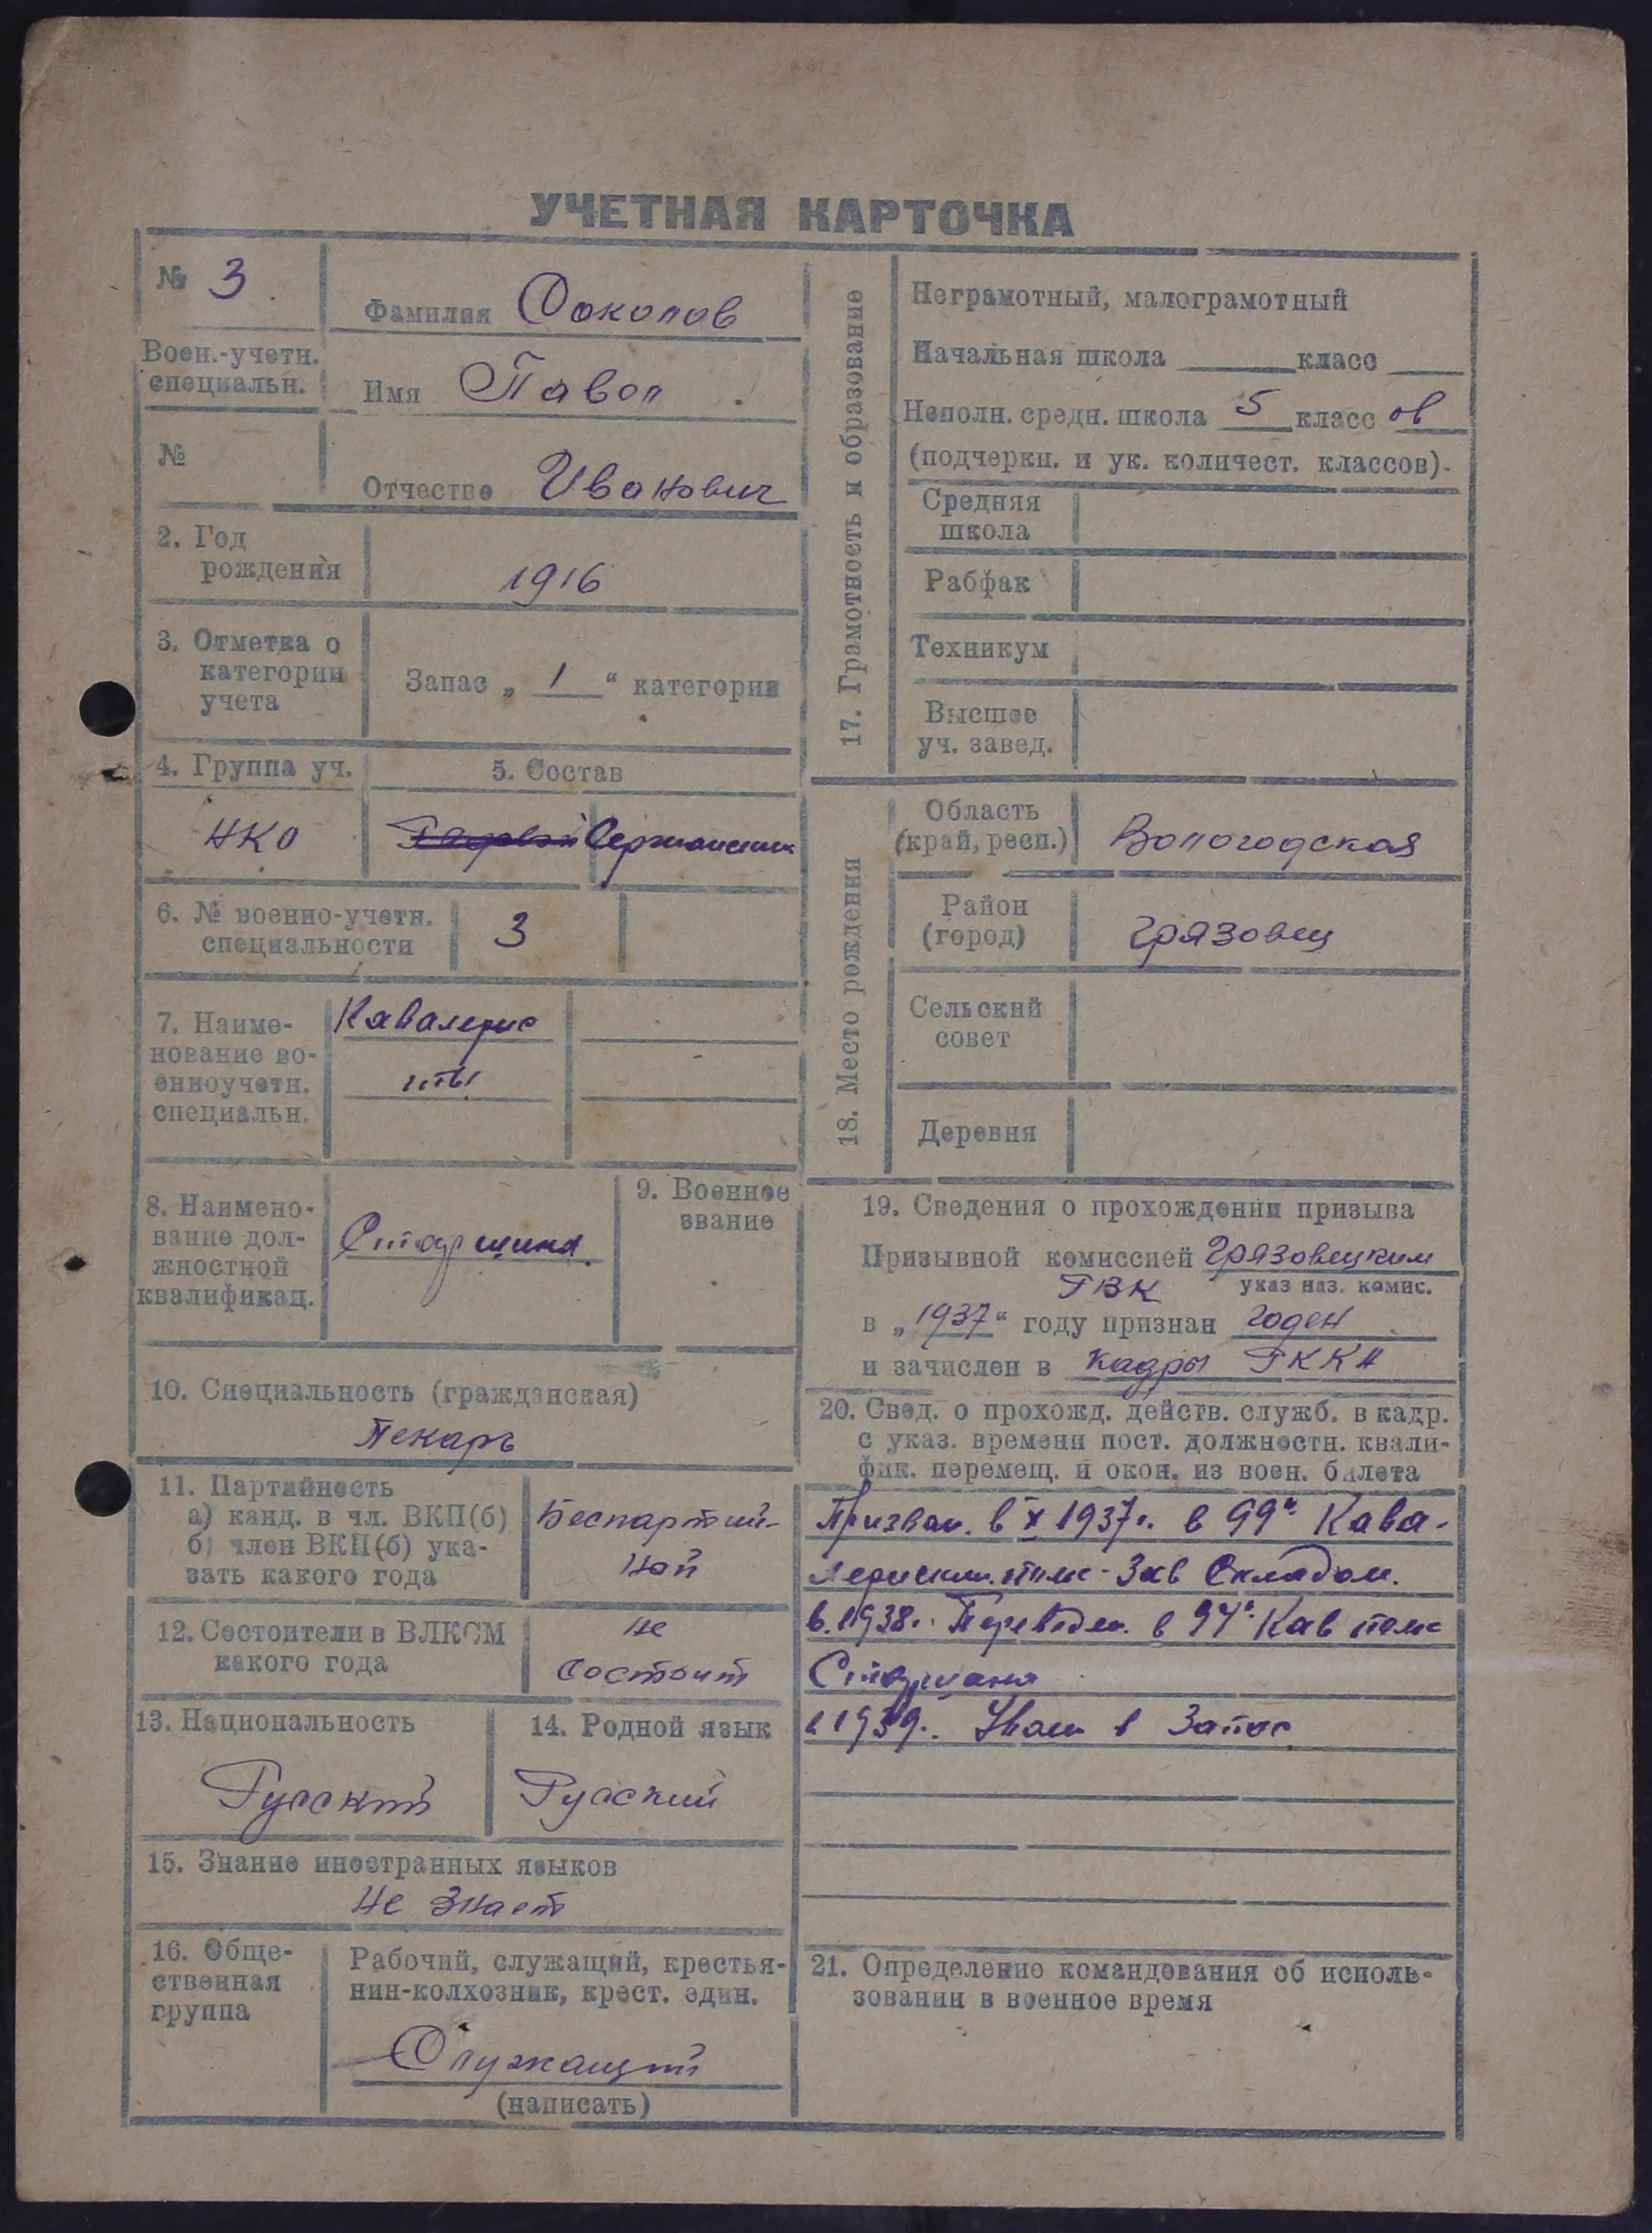 УЧЕТНАЯ КАРТОЧКА
№ 3
Воен.-учетн.
специальн.
№
Фамилия Соколов
Имя Павел
Отчество Иванович
2. Год
рождения
1916
3. Отметка о
категории
учета
Запас „ 1 “ категории
4. Группа уч.
5. Состав
НКО
Рядовой Сержантск
6. № военно-учетн.
специальности
3
7. Наиме-
нование во-
енноучетн.
специальн.
Кавалерис
ты
8. Наимено-
вание дол-
жностной
квалификац.
Старшина
9. Военное
звание
10. Специальность (гражданская)
Пекарь
11. Партийность
а) канд. в чл. ВКП(б)
б) член ВКП(б) ука-
зать какого года
Беспартий-
ный
12. Состоит ли в ВЛКСМ
какого года
не
состоит
13. Национальность
Русский
14. Родной язык
Русский
15. Знание иностранных языков
Не знает
16. Обще-
ственная
группа
Рабочий, служащий, крестья-
нин-колхозник, крест. един.
Служащий
(написать)
17. Грамотность и образование
Неграмотный, малограмотный
Начальная школа класс
Неполн. средн. школа 5 класс ов
(подчеркн. и ук. количест. классов).
Средняя
школа
Рабфак
Техникум
Высшее
уч. завед.
18. Место рождения
Область
(край, респ.)
Вологодская
Район
(город)
Грязовец
Сельский
совет
Деревня
19. Сведения о прохождении призыва
Призывной комиссией Грязовецким
указ наз. комис.
РВК
в „1937“ году признан годен
и зачислен в кадры РККА
20. Свед. о прохожд. действ. служб. в кадр.
с указ. времени пост. должностн. квали-
фик. перемещ. и окон. из воен. билета
Призван. в X 1937г. в 99й Кава-
лерийский полк - Зав Складом.
в 1938г. Переведен. в 94й Кав полк
Старшина
в 1939г. Увол в Запас
21. Определение командования об исполь-
зовании в военное время